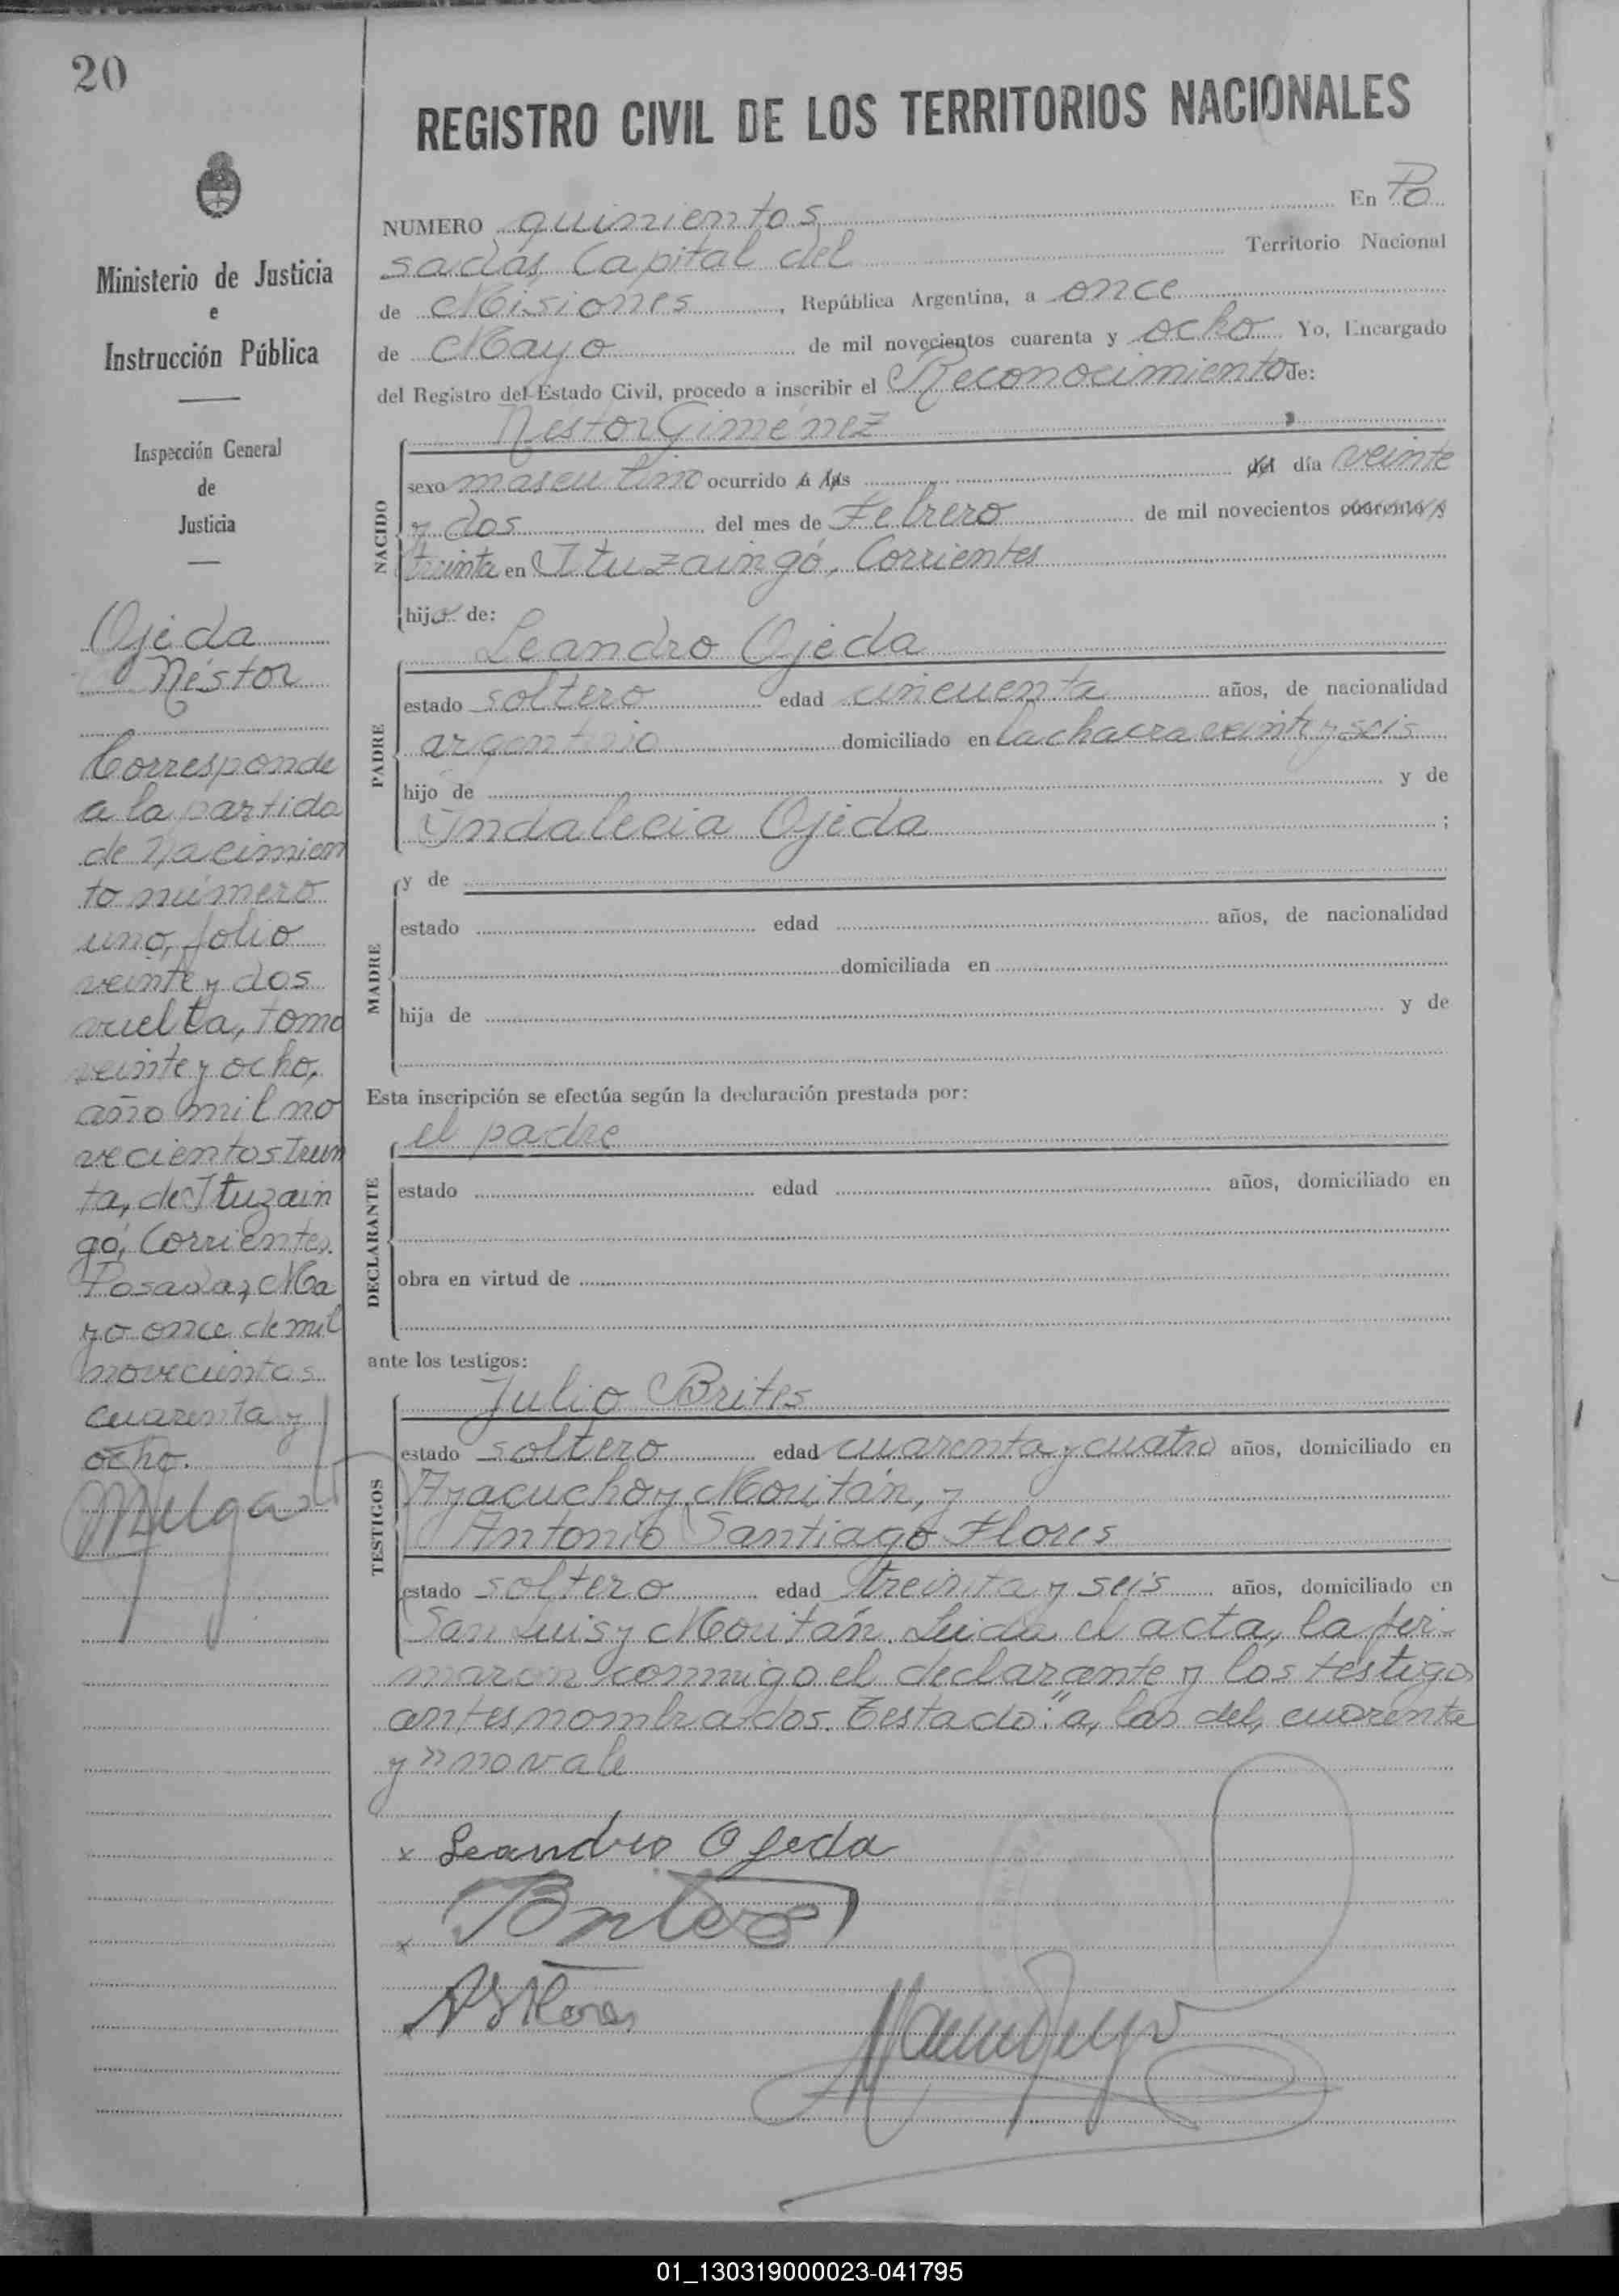 20
Ministerio de Justicia
e
Instrucción Pública
Inspección General
de
Justicia
Ojeda
Néstor
Corresponde
a la partida
de Nacimien
to número
uno, folio
veinte y dos
vuelta, tomo
veinte y ocho,
año mil no
vecientos trein
ta, de Ituzain
gó, Corrientes.
Posadas, Ma
yo once de mil
novecientos
cuarenta y
ocho.
REGISTRO CIVIL DE LOS TERRITORIOS NACIONALES
NUMERO quinientos En Po
sadas, Capital del Territorio Nacional
de Misiones, República Argentina, a once
de Mayo de mil novecientos cuarenta y ocho Yo, Encargado
del Registro del Estado Civil, procedo a inscribir el Reconocimiento de:
NACIDO
Néstor Giménez
sexo masculino ocurrido a las del día veinte
y dos del mes de Febrero de mil novecientos cuarenta y
treinta en Ituzaingó, Corrientes
hijo de:
PADRE
Leandro Ojeda
estado soltero edad cincuenta años, de nacionalidad
argentino domiciliado en la chacra veinte y seis
hijo de y de
Indalecia Ojeda ;
MADRE
y de
estado edad años, de nacionalidad
domiciliada en
hija de y de
Esta inscripción se efectúa según la declaración prestada por:
DECLARANTE
el padre
estado edad años, domiciliado en
obra en virtud de
ante los testigos:
TESTIGOS
Julio Brites
estado soltero edad cuarenta y cuatro años, domiciliado en
Ayacucho y Moritán, y
Antonio Santiago Flores
estado soltero edad treinta y seis años, domiciliado en
San Luis y Moritán. Leida el acta, la fir-
maron conmigo el declarante y los testigos
antes nombrados. Testado: "a, las del, cuarenta
y" no vale
x Leandro Ojeda
x Brites
x ASFlores
01_130319000023-041795